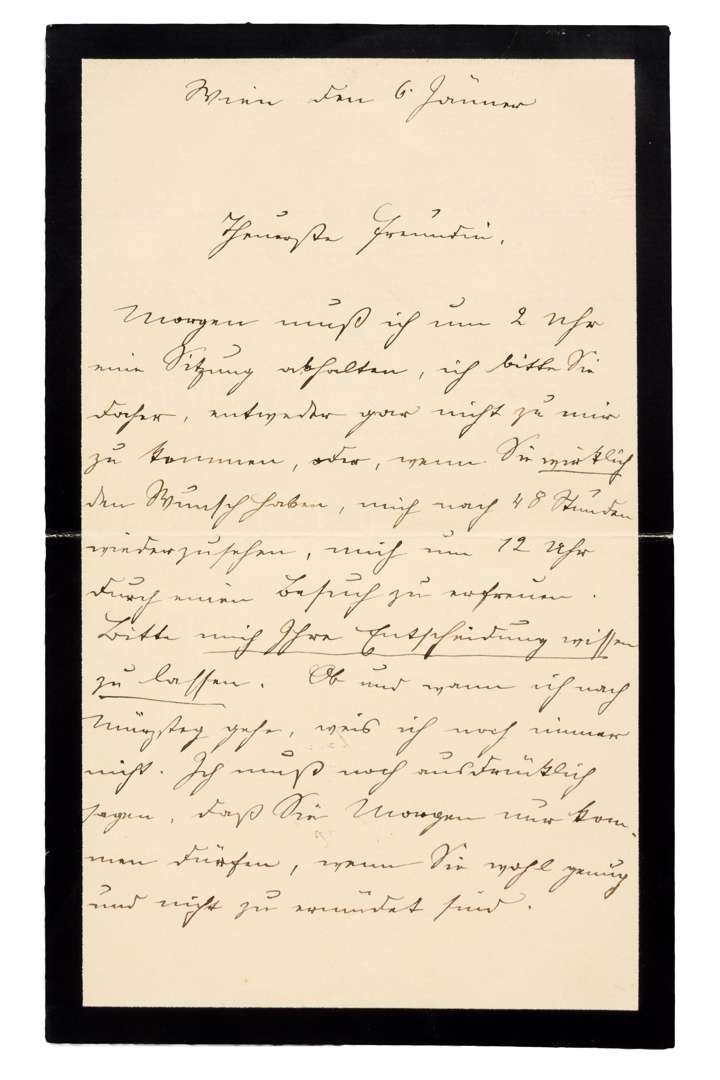 Wien den 6. Jänner
Theuerste Freundin,
Morgen muß ich um 2 Uhr
eine Sitzung abhalten, ich bitte Sie
daher, entweder gar nicht zu mir
zu kommen, oder, wenn Sie wirklich
den Wunsch haben, mich nach 48 Stunden
wiederzusehen, mich um 12 Uhr
durch einen Besuch zu erfreuen.
Bitte mich Ihre Entscheidung wissen
zu lassen. Ob und wann ich nach
Mürzsteg gehe, weis ich noch immer
nicht. Ich muß noch ausdrücklich
sagen, daß Sie Morgen nur kom-
men dürfen, wenn Sie wohl genug
und nicht zu ermüdet sind.